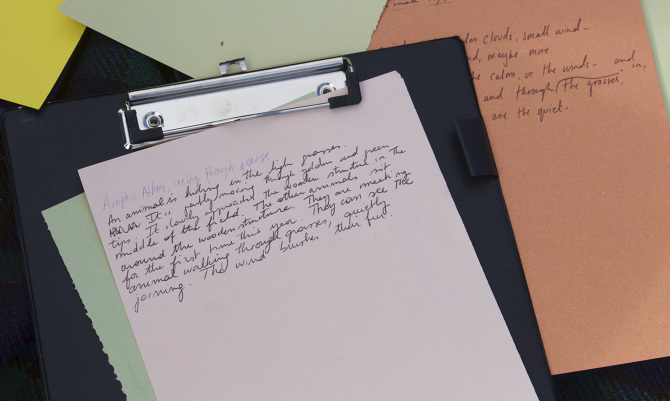 small
clouds, small wind-
maybe more
the calm, or the winds- and
and through the grasses, in,
are the quiet.
seeing through
An animal is hiding in the high grasses.
It is calmly moving through golden and green
tips. It slowly approaches the wooden structure in the
middle of the field. The other animals sit
around the wooden structure. They are meeting
for the first time this year. They can see the
animal walking through grasses, quietly
joining. The wind brushes their fur.